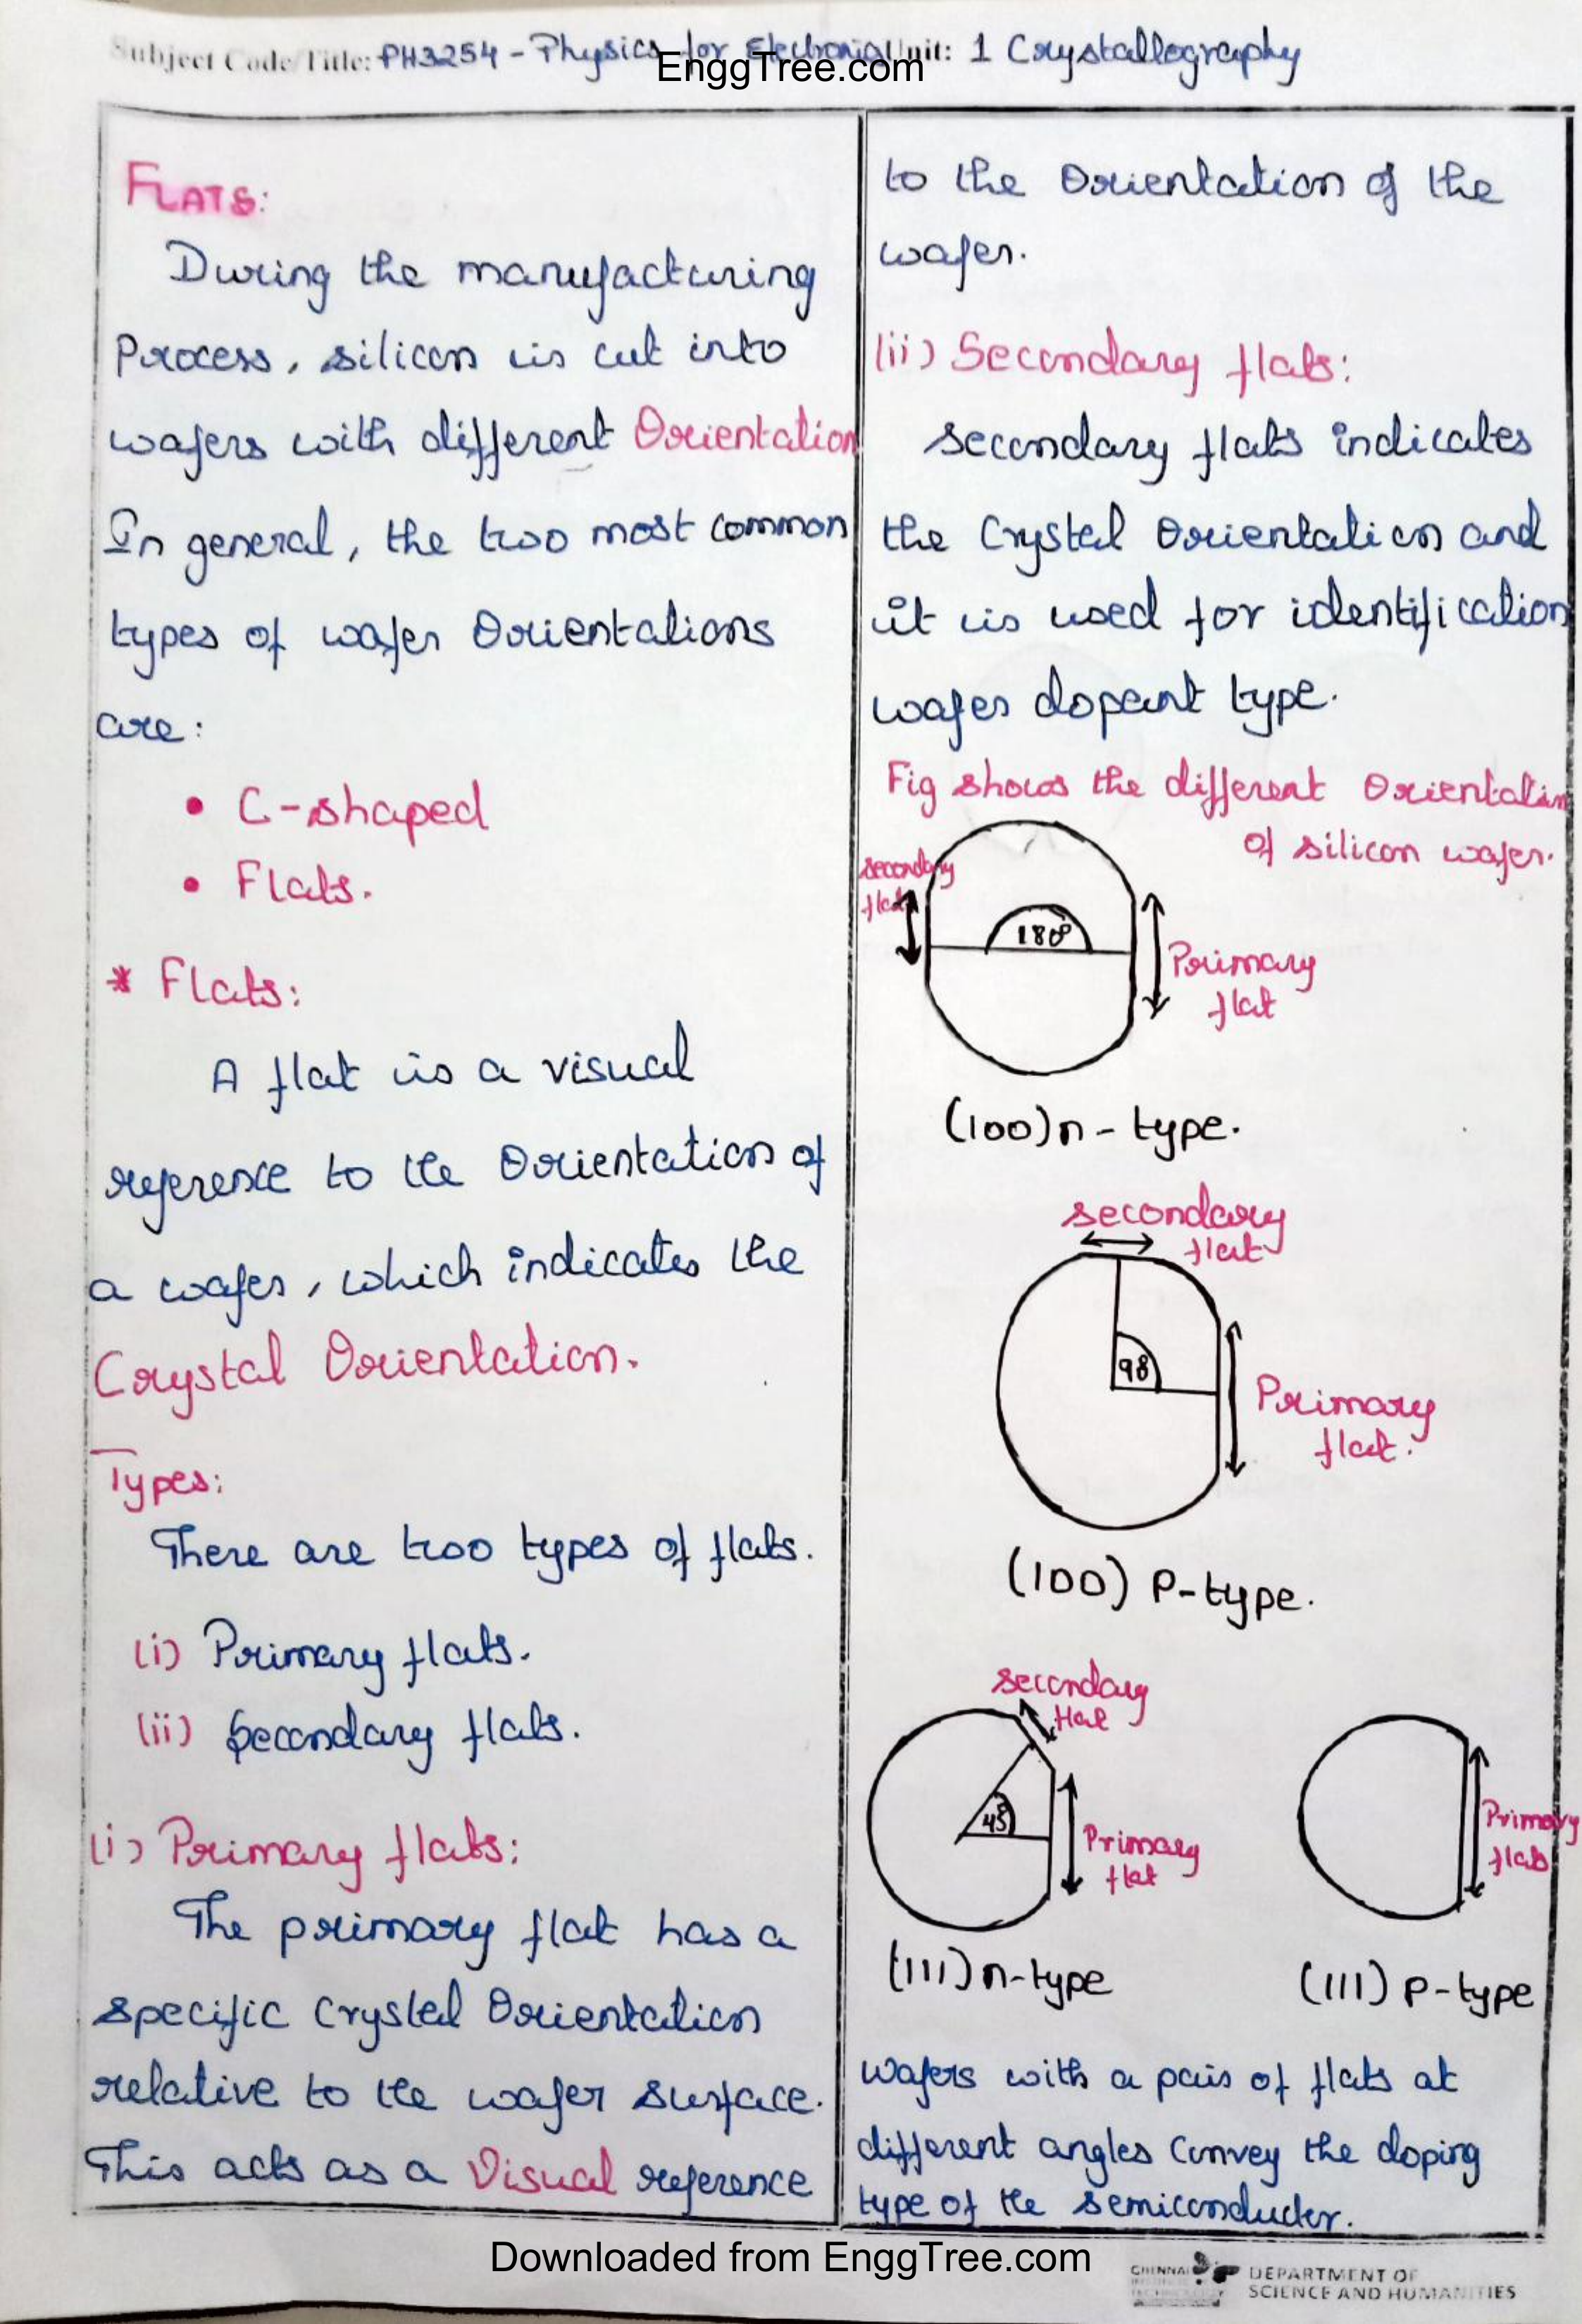 Subject Code/Title: PH3254 - Physics for Electronic Unit: 1 Crystallography
EnggTree.com
FLATS:
During the manufacturing
Process, silicon is cut into
wafers with different Orientation
In general, the two most common
types of wafer Orientations
are:
• C-shaped
• Flats.
* Flats:
A flat is a visual
reference to the Orientation of
a wafer, which indicates the
Crystal Orientation.
Types:
There are two types of flats.
(i) Primary flats.
(ii) Secondary flats.
(i) Primary flats:
The primary flat has a
specific Crystal Orientation
relative to the wafer surface.
This acts as a Visual reference
to the Orientation of the
wafer.
(ii) Secondary flats:
secondary flats indicates
the Crystal Orientation and
it is used for identification
wafer dopant type.
Fig shows the different Orientation
of silicon wafer.
secondary
flat
180°
Primary
flat
(100) n-type.
secondary
flat
90
Primary
flat.
(100) P-type.
secondary
flat
45°
Primary
flat
(111) n-type
Primary
flat
(111) P-type
wafers with a pair of flats at
different angles Convey the doping
type of the semiconductor.
Downloaded from EnggTree.com
CHENNAI
INSTITUTE OF
TECHNOLOGY
DEPARTMENT OF
SCIENCE AND HUMANITIES